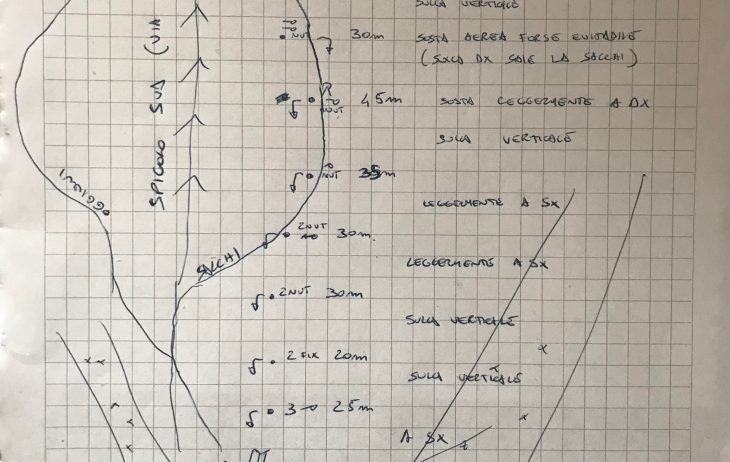 SULLA VERTICALE
30m SOSTA AEREA FORSE EVITABILE
(SULLA DX SALE LA SACCHI)
45m SOSTA LEGGERMENTE A DX
NUT
SULLA VERTICALE
35m
NUT
LEGGERMENTE A SX
2NUT 30m
LEGGERMENTE A SX
2NUT 30m
SULLA VERTICALE
2 FIX 20m
SULLA VERTICALE
3 25m
A SX
SPIGOLO SUD (VIA
OGGIONI
SACCHI